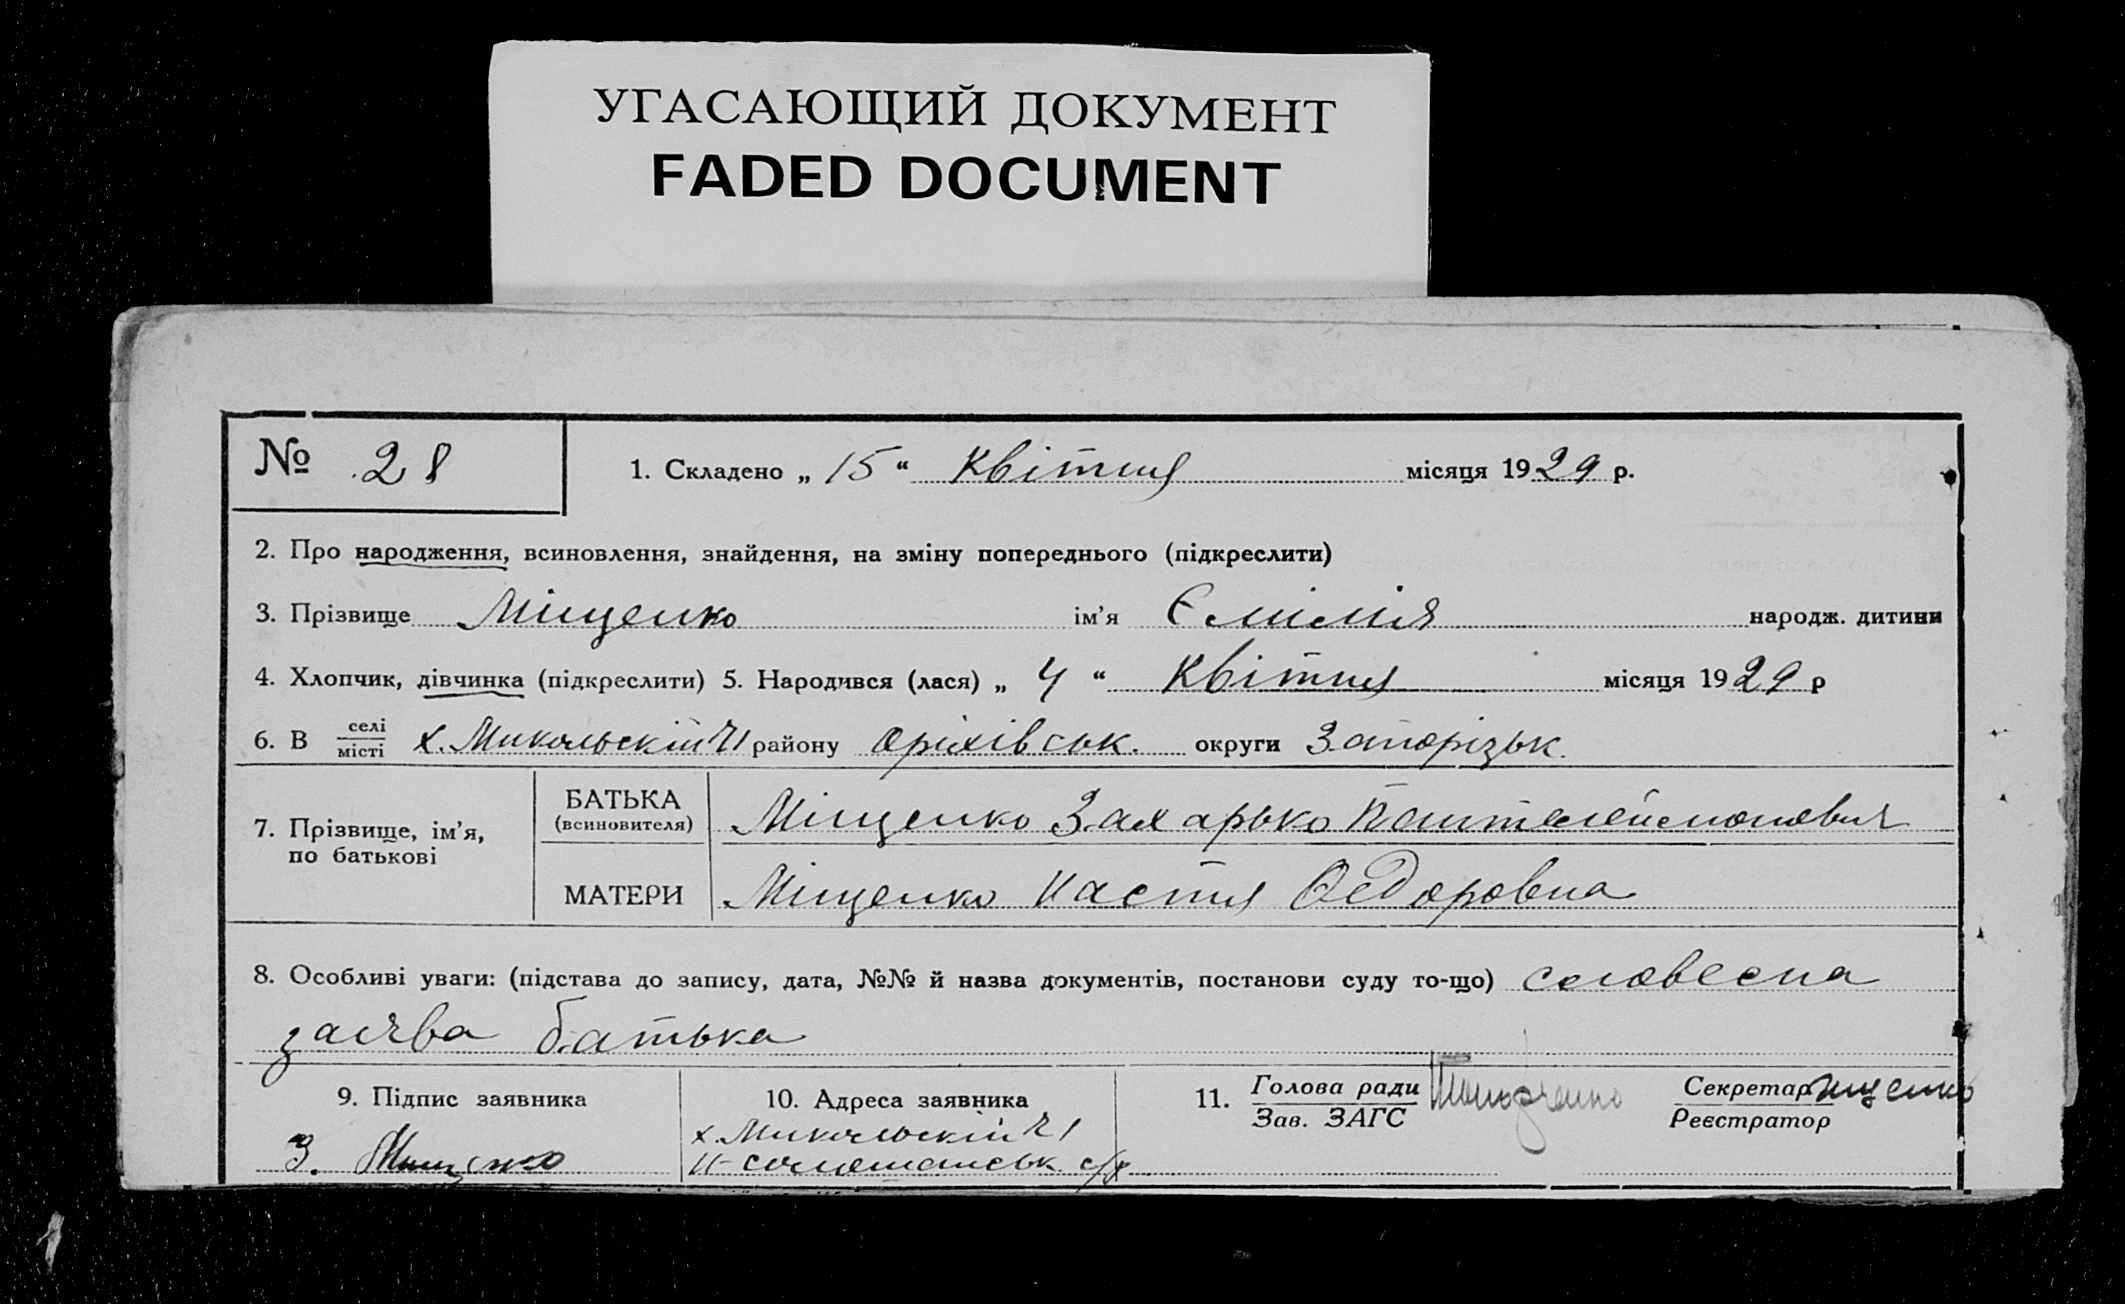 УГАСАЮЩИЙ ДОКУМЕНТ
FADED DOCUMENT
№ 28
1. Складено „ 15 “ Квітня місяця 1929 р.
2. Про народження, всиновлення, знайдення, на зміну попереднього (підкреслити)
3. Прізвище Міщенко ім’я Ємілія народж. дитини
4. Хлопчик, дівчинка (підкреслити) 5. Народився (лася) „ 4 “ Квітня місяця 1929 р
6. В селі місті х. Микольскій №1 району Оріхівськ. округи Запорізьк.
7. Прізвище, ім’я, по батькові
БАТЬКА (всиновителя) Міщенко Захарько Пантелеймонович
МАТЕРИ Міщенко Настя Федоровна
8. Особливі уваги: (підстава до запису, дата, №№ й назва документів, постанови суду то-що) словесна
заява батька
9. Підпис заявника
З. Мищенко
10. Адреса заявника
х. Микольскій №1
с/р
11. Голова ради
Зав. ЗАГС
Секретар
Реєстратор